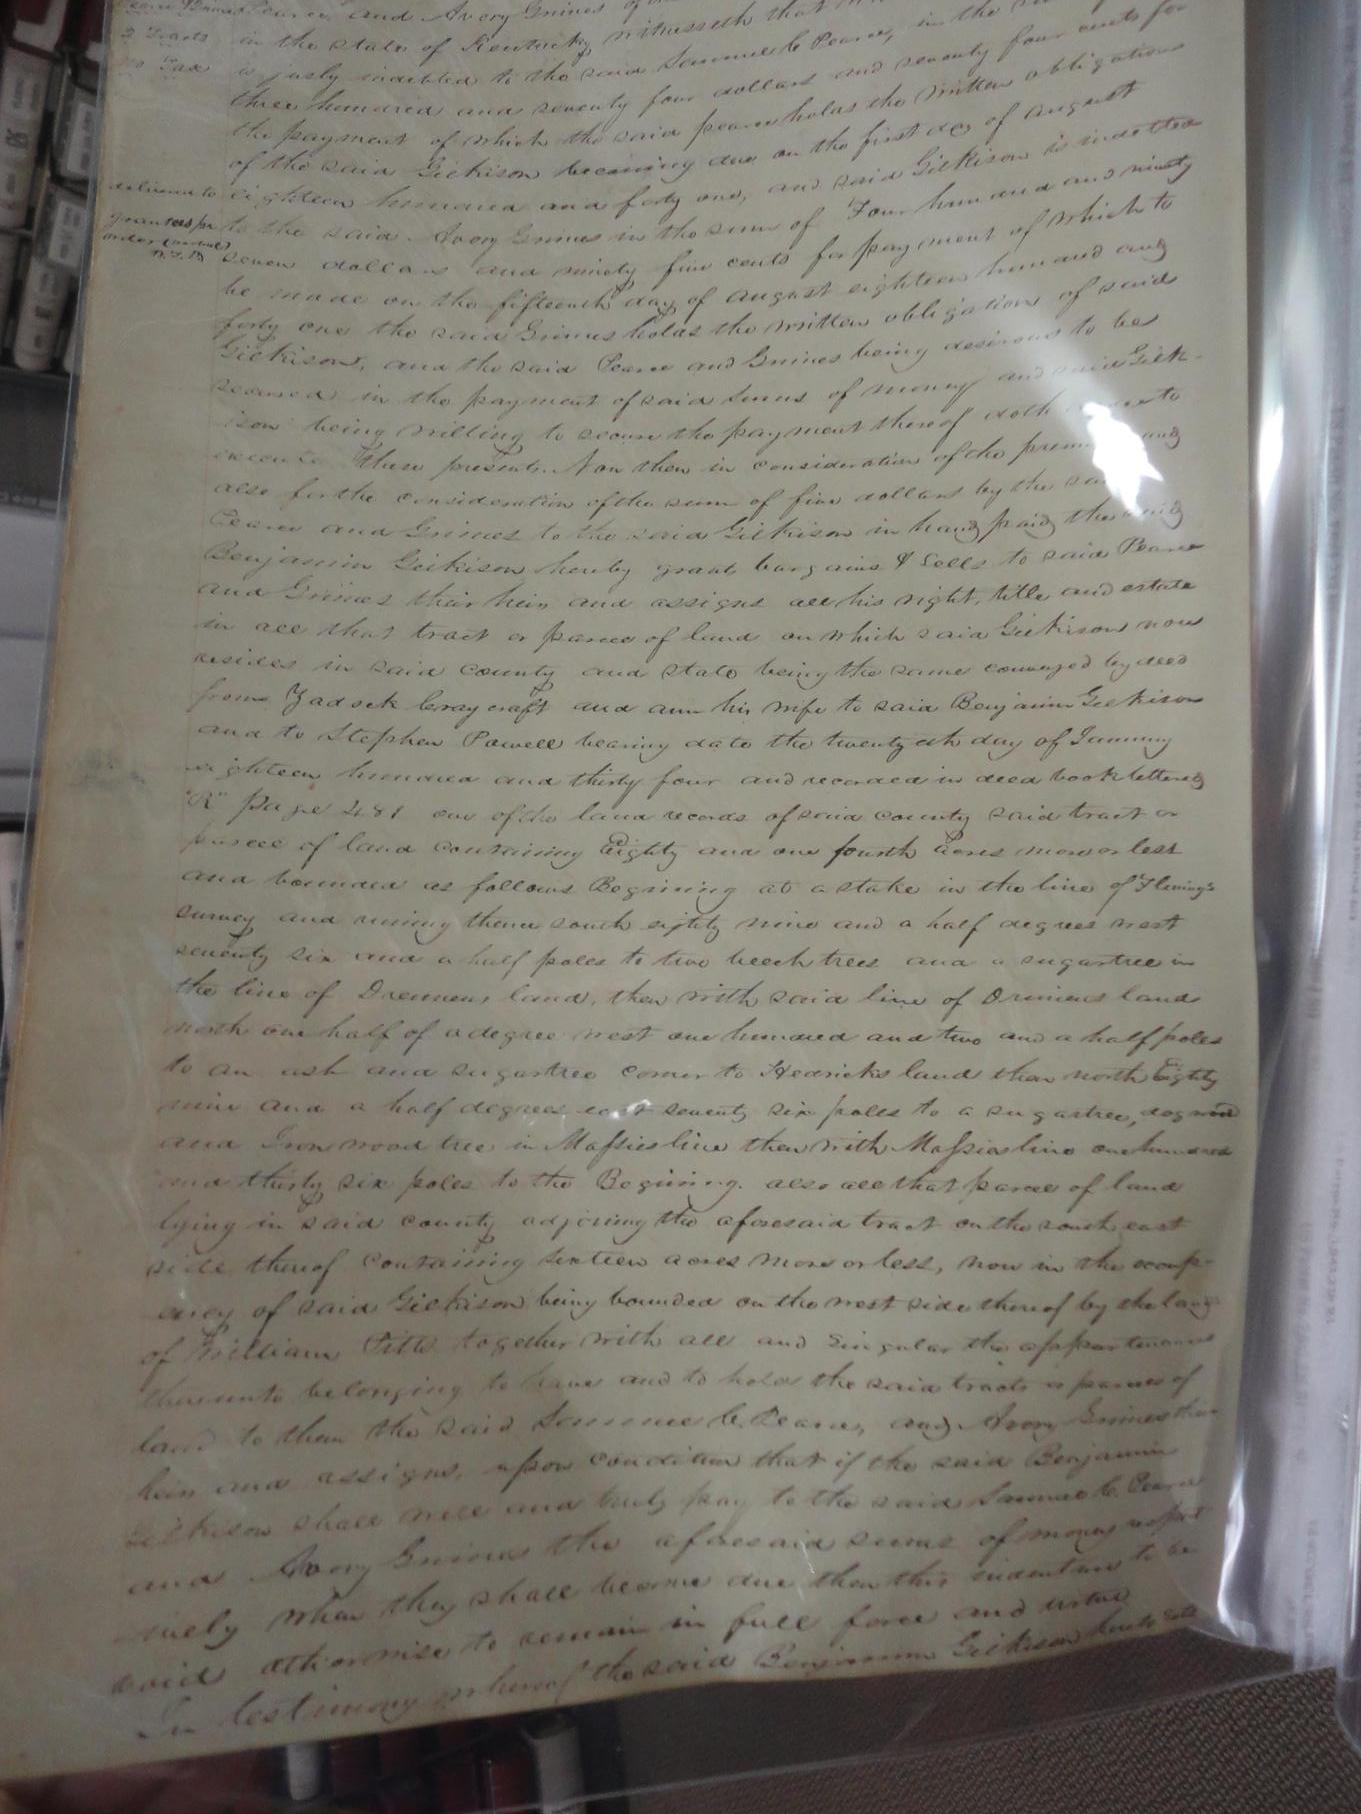 Pearce and Avory Grimes
2 Tracts
in the state of Kentucky, witnesseth that
No Tax
is justly indebted to the said Samuel C Pearce, in the
three hundred and seventy four dollars and seventy four cents for
the payment of which the said pearce holds the written obligation
of the said Gilkison becoming due on the first day of August
delivered to
eighteen hundred and forty one, and said Gilkison is indetted
grantees pr
to the said Avory Grimes in the sum of Four hundred and ninety
order
seven dollars and ninety five cents for payment of which to
be made on the fifteenth day of august eighteen hundred and
forty one the said Grimes holds the written obligation of said
Gilkison, and the said Pearce and Grimes being desirous to be
secured in the payment of said sums of money and said Gilk-
ison being willing to secure the payment thereof doth to
execute these presents. Now then in consideration of the and
also for the consideration of the sum of five dollars by the
Pearce and Grimes to the said Gilkison in hand paid the said
Benjamin Gilkison hereby grants bargains & Sells to said Pearce
and Grimes their heirs and assigns all his right, title and estate
in all that tract or parcel of land on which said Gilkison now
resides in said county and state being the same conveyed by deed
from Zadock Craycraft and ann his wife to said Benjamin Gilkison
and to Stephen Powell bearing date the day of January
eighteen hundred and thirty four and recorded in deed book lettered
"R" page 481 one of the land records of said county said tract or
parcel of land containing Eighty and one fourth Acres more or less
and bounded as follows Begining at a stake in the line of Fleming's
survey and runing thence south eighty nine and a half degrees west
seventy six and a half poles to two beech trees and a sugartree in
the line of Drennens land, then with said line of land
north one half of a degree west one hundred and two and a half poles
to an ash and sugartree corner to Hedricks land then north Eighty
nine and a half degrees east seventy six poles to a sugartree, dogwood
and Ironwood tree in Massies line then with Massies line one hundred
and thirty six poles to the Begining. also all that parcel of land
lying in said county adjoining the aforesaid tract on the south east
side thereof containing sixteen acres more or less, now in the occup-
ancy of said Gilkison being bounded on the west side thereof by the land
of William Pitts together with all and singular the appurtenances
thereunto belonging to have and to hold the said tracts or parcels of
land to them the said Samuel C. Pearce, and Avory Grimes their
heirs and assigns, upon condition that if the said Benjamin
Gilkison shall well and truly pay to the said Samuel C. Pearce
and Avory Grimes the aforesaid sums of money respect
ively when they shall become due then this indenture to be
void otherwise to remain in full force and virtue
In testimony whereof the said Benjamin Gilkison hath